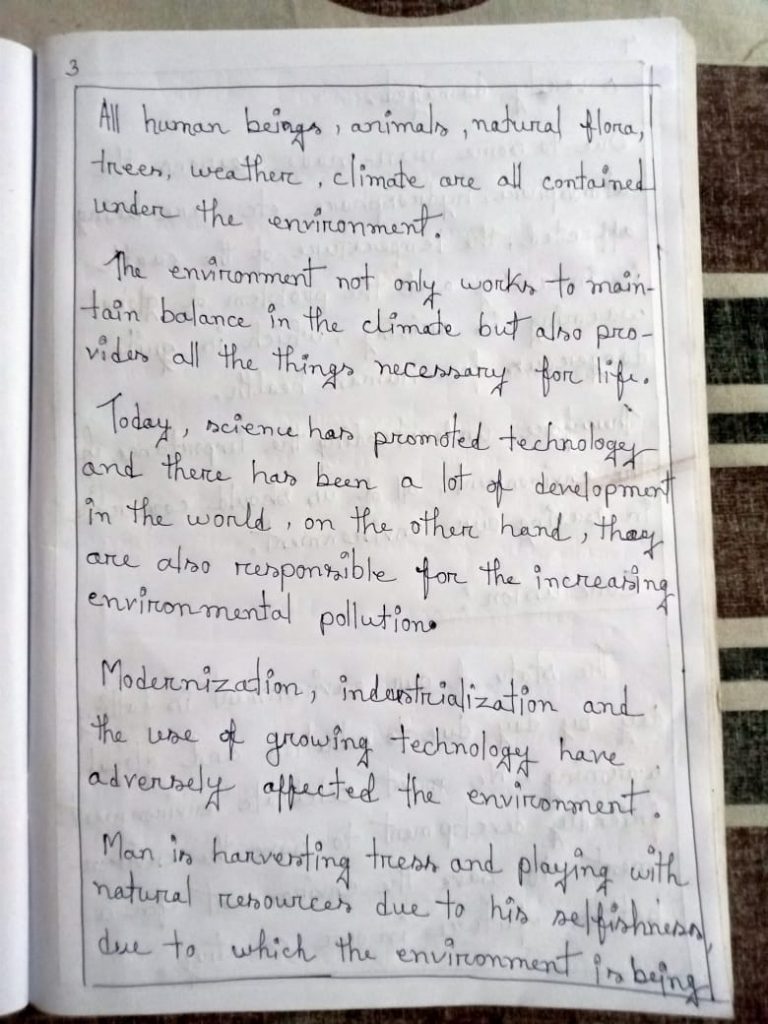 3
All human beings, animals, natural flora,
trees, weather, climate are all contained
under the environment.
The environment not only works to main-
tain balance in the climate but also pro-
vides all the things necessary for life.
Today, science has promoted technology
and there has been a lot of development
in the world, on the other hand, they
are also responsible for the increasing
environmental pollution.
Modernization, industrialization and
the use of growing technology have
adversely affected the environment.
Man is harvesting tress and playing with
natural resources due to his selfishness,
due to which the environment is being